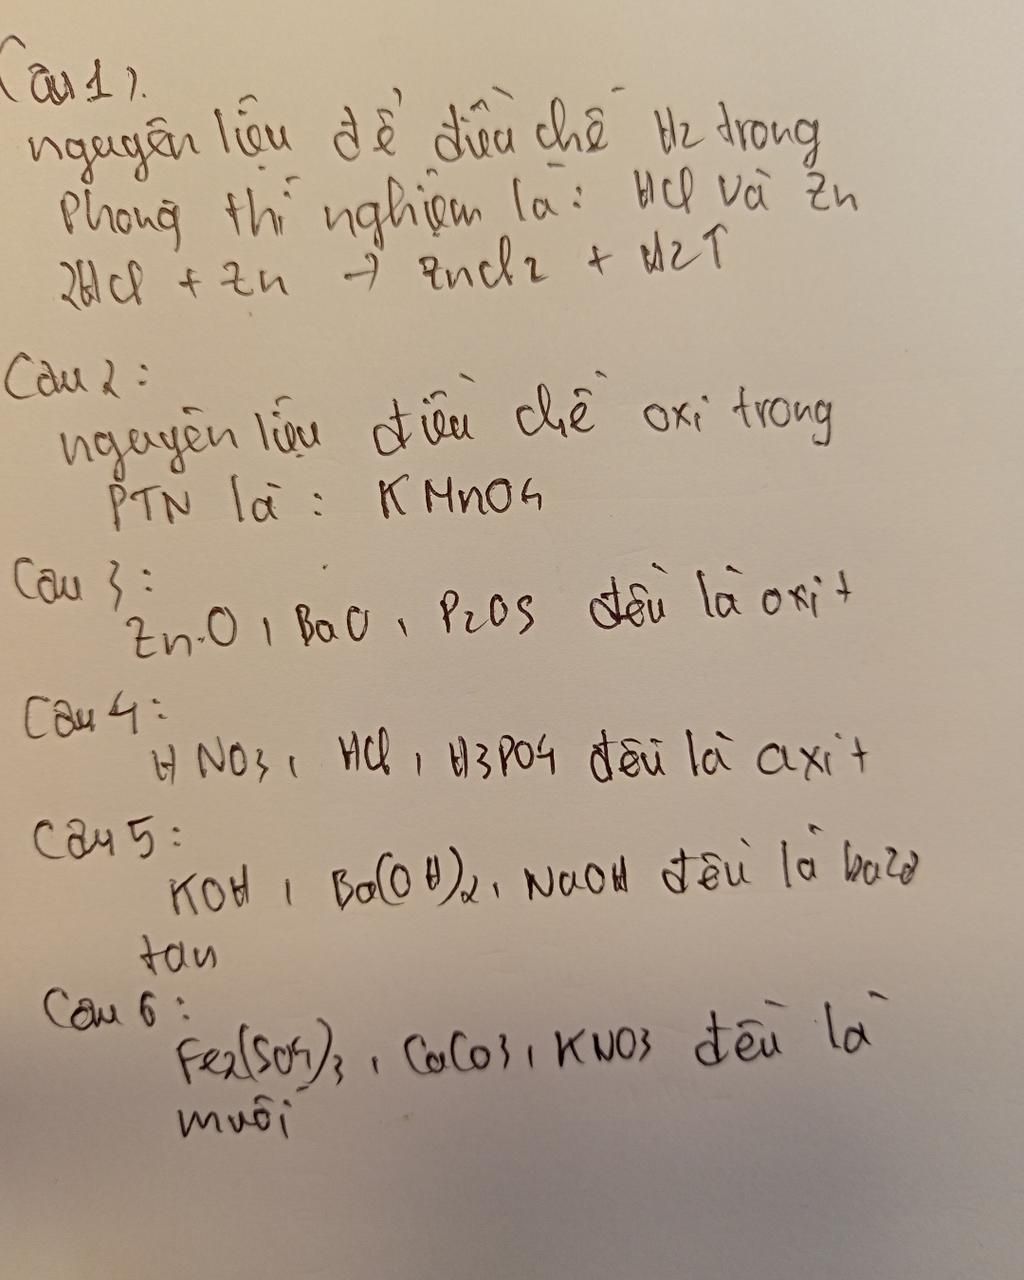 Câu 1).
nguyên liệu để điều chế H2 trong
Phòng thí nghiệm là: HCl và Zn
2HCl + Zn → ZnCl2 + H2↑
Câu 2:
nguyên liệu điều chế oxi trong
PTN là: KMnO4
Câu 3:
ZnO, BaO, P2O5 đều là oxit
Câu 4:
HNO3, HCl, H3PO4 đều là axit
Câu 5:
KOH, Ba(OH)2, NaOH đều là bazơ
tan
Câu 6:
Fe2(SO4)3, CaCO3, KNO3 đều là
muối